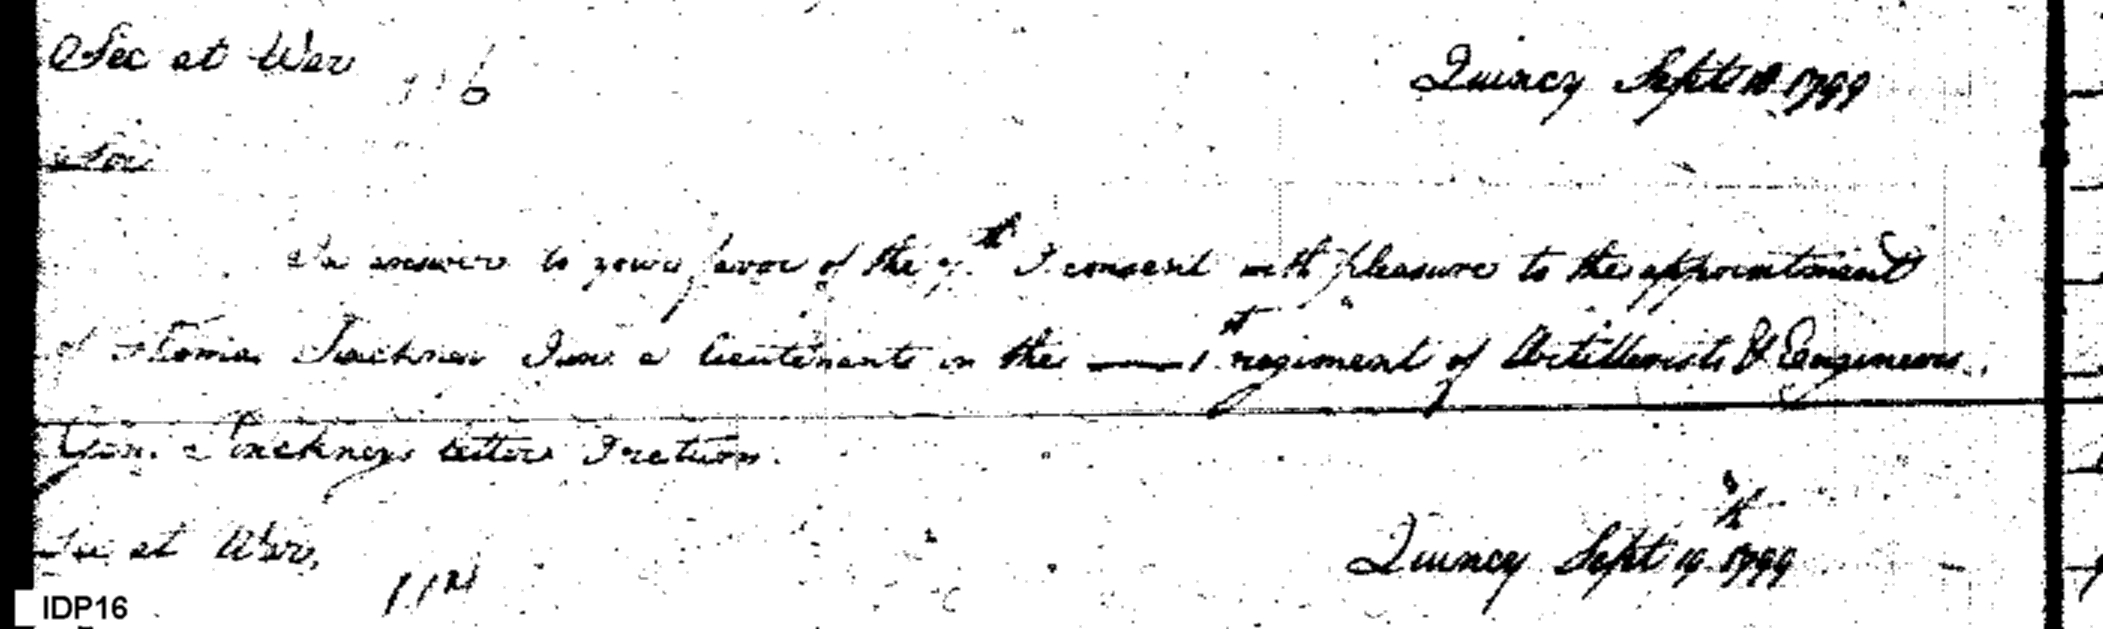 Sec at War 116
Quincy Sept 18 1799
Sir
In answer to your favor of the 7th I consent with pleasure to the appointment
of Thomas Jun. a lieutenant in the 1st regiment of Artillerists & Engineers.
Gen. Pinckneys letter I return.
Sec at War,
Quincy Sept 19th 1799
IDP16